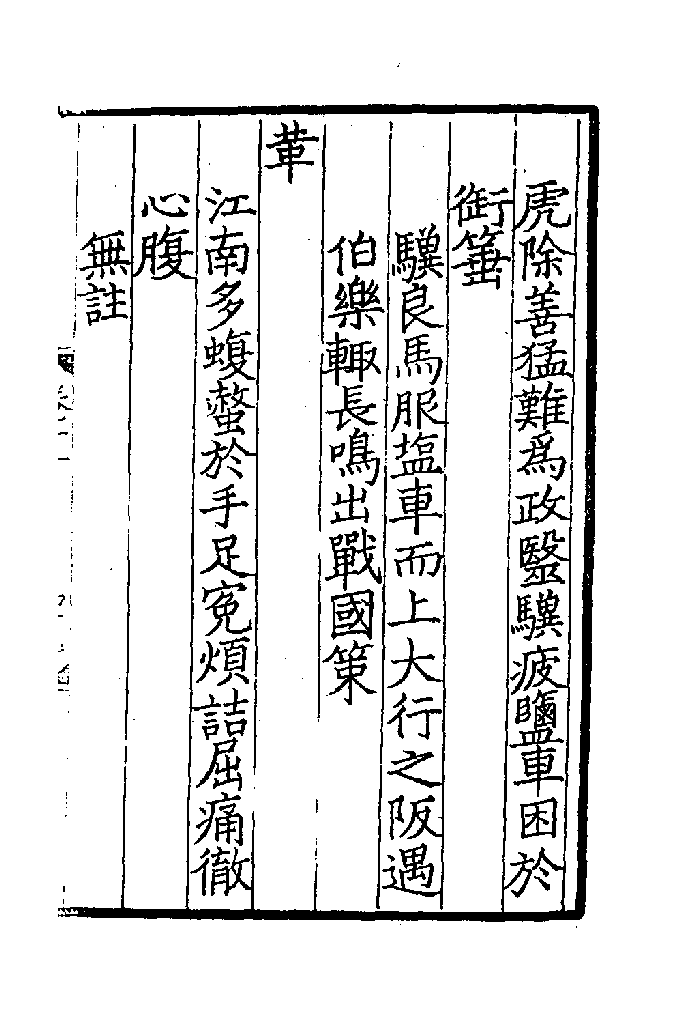 虎除善猛難爲政毉驥疲鹽車困於
銜箠
驥良馬服塩車而上大行之阪遇
伯樂輙長鳴出戰國策
葦
江南多蝮螫於手足寃煩詰屈痛徹
心腹
無註